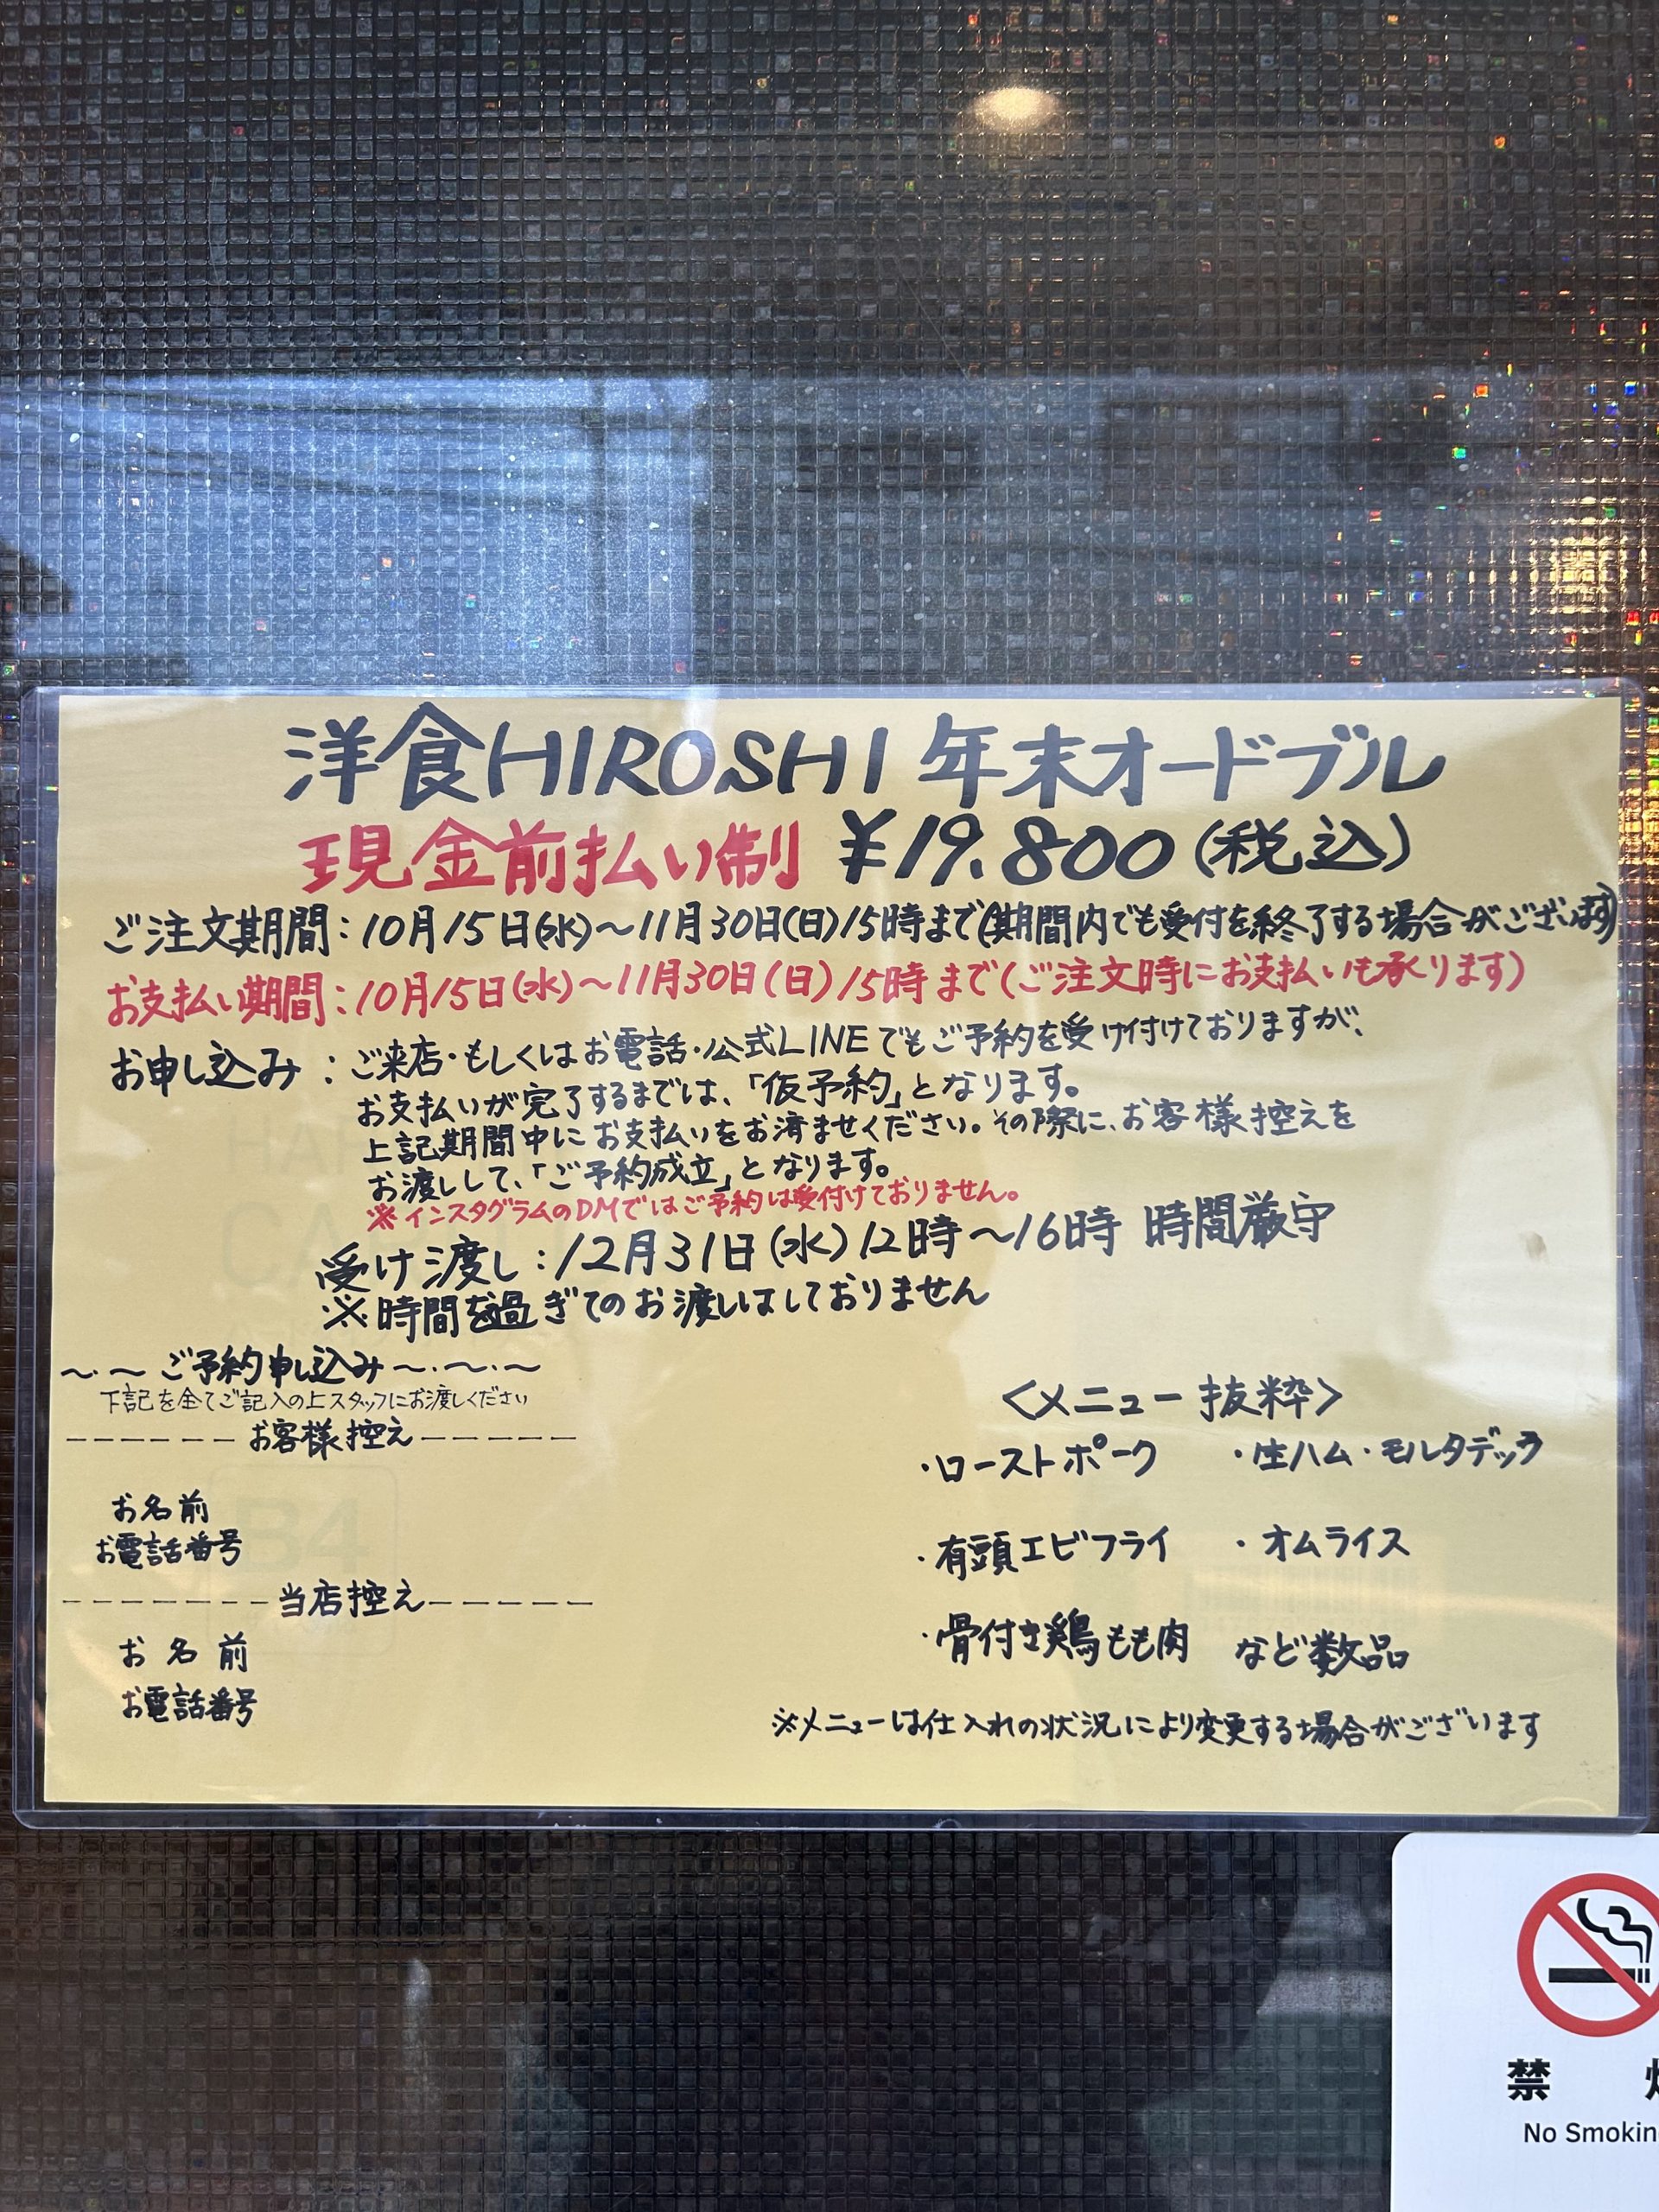 洋食HIROSHI 年末オードブル
現金前払い制 ¥19.800(税込)
ご注文期間:10月15日(水)~11月30日(日)15時まで(期間内でも受付を終了する場合がございます)
お支払い期間:10月15日(水)~11月30日(日)15時まで(ご注文時にお支払いも承ります)
お申し込み:ご来店・もしくはお電話・公式LINEでもご予約を受け付けておりますが、
お支払いが完了するまでは、「仮予約」となります。
上記期間中にお支払いをお済ませください。その際に、お客様控えを
お渡しして、「ご予約成立」となります。
※インスタグラムのDMではご予約は受付けておりません。
受け渡し:12月31日(水)12時~16時 時間厳守
※時間を過ぎてのお渡しはしておりません
~・~ご予約申し込み~・~・~
下記を全てご記入の上スタッフにお渡しください
------お客様控え-----
お名前
お電話番号
-------当店控え-----
お名前
お電話番号
<メニュー抜粋>
・ローストポーク ・生ハム・モルタデッラ
・有頭エビフライ ・オムライス
・骨付き鶏もも肉 など数品
※メニューは仕入れの状況により変更する場合がございます
禁
No Smokin